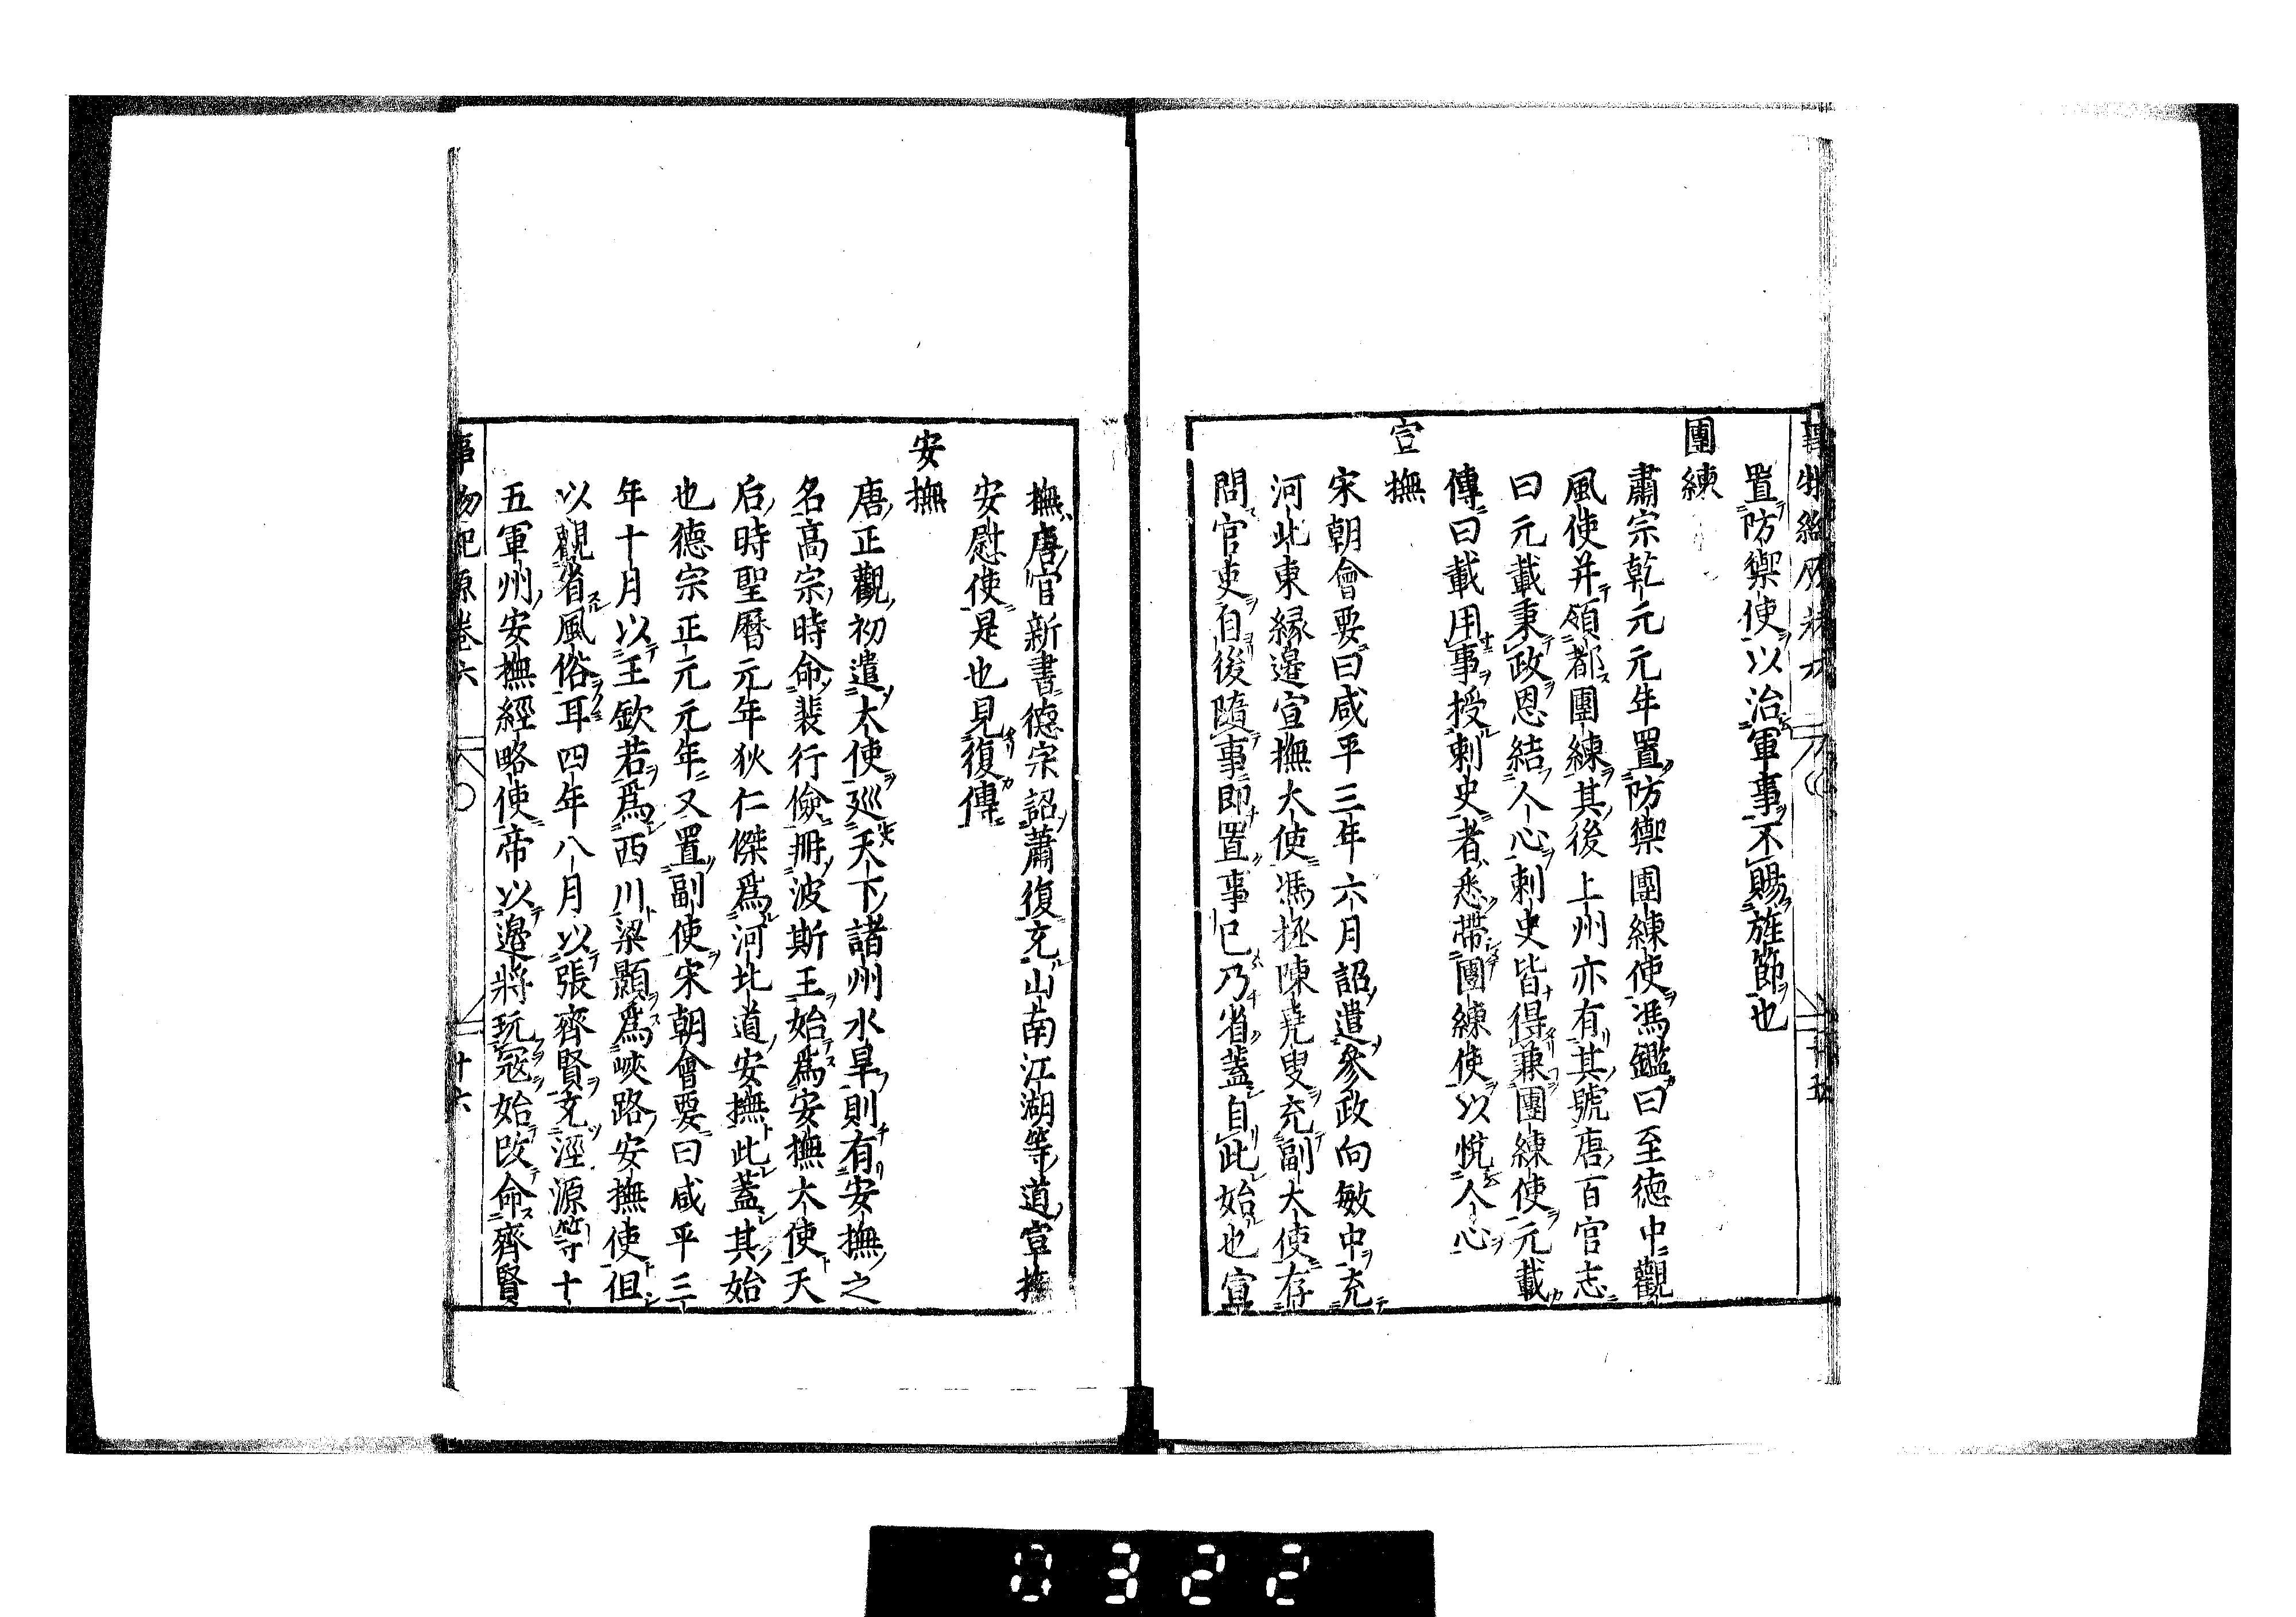 置防禦使以治軍事不賜旌節也
團練
肅宗乾元元年置防禦團練使馮鑑曰至德中觀
風使并領都團練其後上州亦有其號唐百官志
曰元載秉政思結人心刺史皆得兼團練使元載
傳曰載用事授刺史者悉帶團練使以悅人心
宣撫
宋朝會要曰咸平三年六月詔遣參政向敏中充
河北東緣邊宣撫大使馮拯陳堯叟充副大使存
問官吏自後隨事即置事已乃省蓋自此始也宣
撫唐官新書德宗詔蕭復充山南江湖等道宣撫
安慰使是也見復傳
安撫
唐正觀初遣大使巡天下諸州水旱則有安撫之
名高宗時命裴行儉冊波斯王始爲安撫大使天
后時聖曆元年狄仁傑爲河北道安撫此蓋其始
也德宗正元元年又置副使宋朝會要曰咸平三
年十月以王欽若爲西川梁顥爲峽路安撫使徂
以觀省風俗耳四年八月以張齊賢充涇源等十
五軍州安撫經略使帝以邊將玩寇始改命齊賢
事物紀原卷六 十六
0322